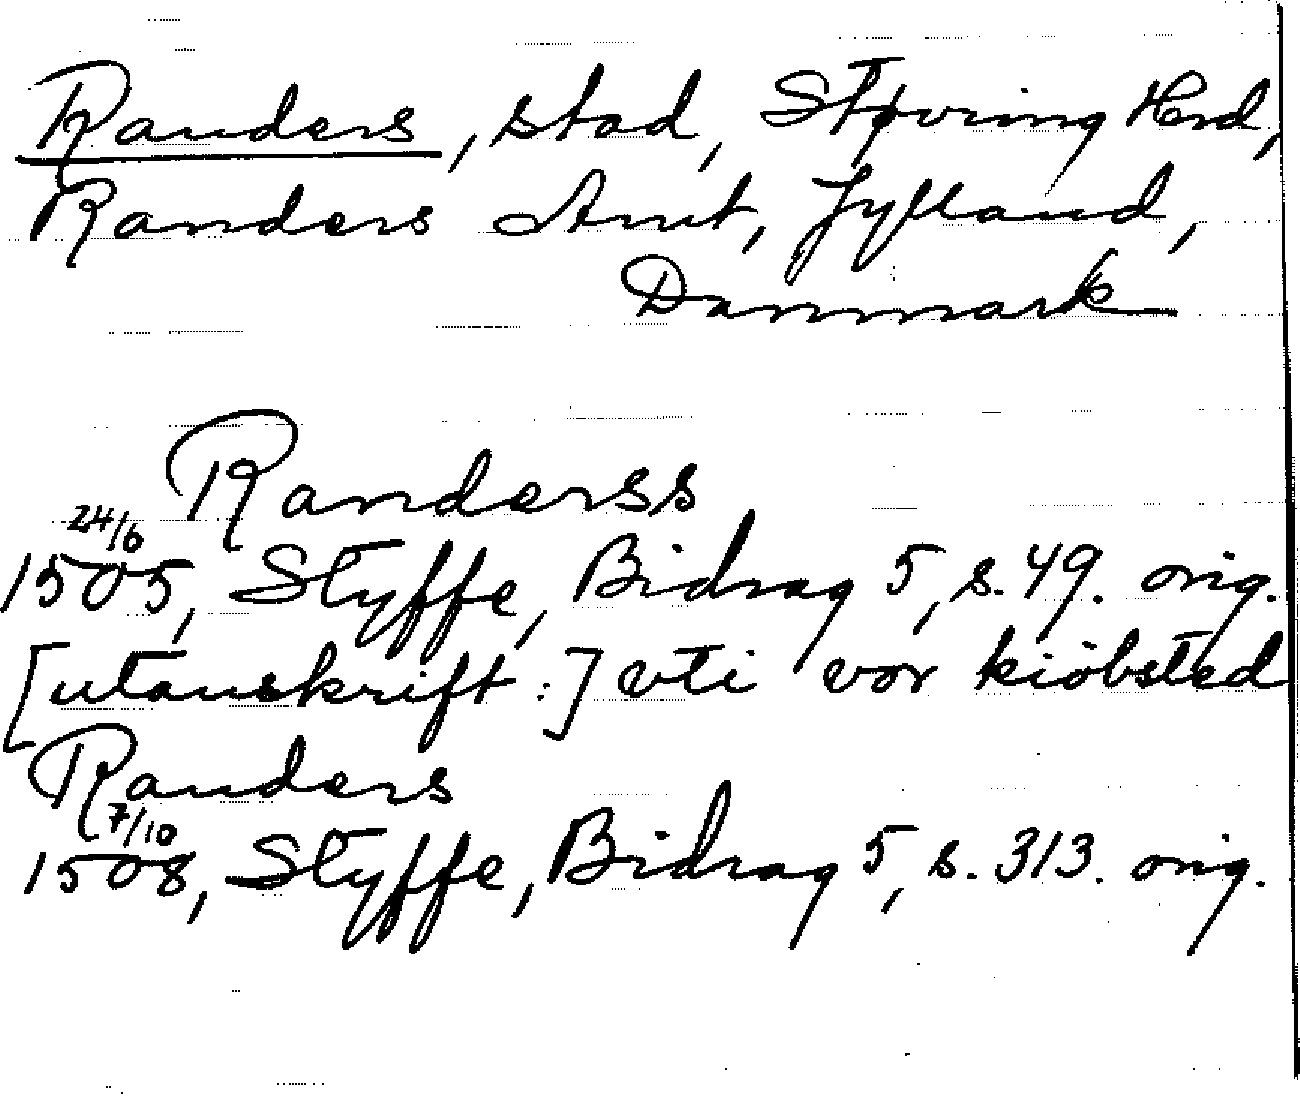 Randers, stad, Støvring Herd,
Randers Amt, Jylland,
Danmark
Randerss
24/6
1505, Styffe, Bidrag 5, s. 49. orig.
[utanskrift:] vti vor kiöbsted
Randers
7/10
1508, Styffe, Bidrag 5, s. 313. orig.